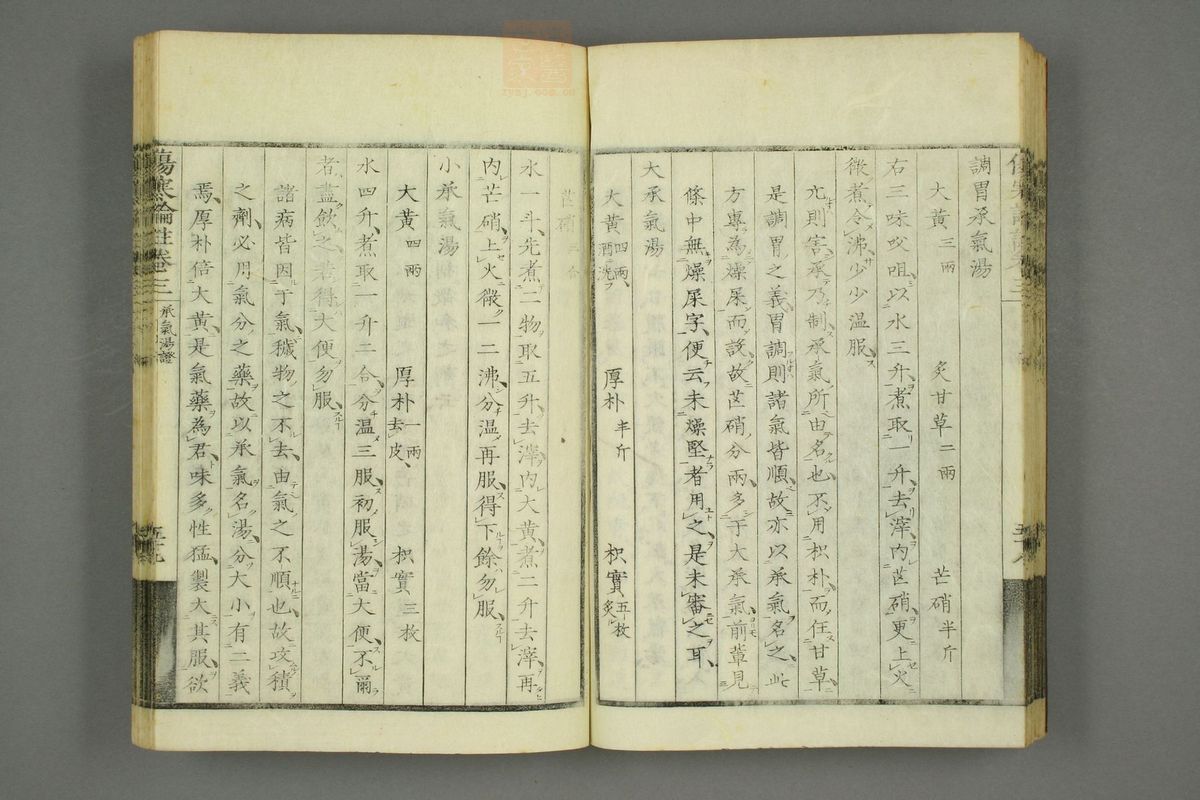 調胃承氣湯
大黃三兩 炙甘草二兩 芒硝半斤
右三味㕮咀以水三升煮取一升去滓内芒硝更上火
微煮令沸少少溫服
亢則害承乃制承氣所由名也不用枳朴而任甘草
是調胃之義胃調則諸氣皆順故亦以承氣名之此
方專為燥屎而設故芒硝分兩多于大承氣前輩見
條中無燥屎字便云未燥堅者用之是未審之耳
大承氣湯
大黃四兩酒洗 厚朴半斤 枳實五枚炙
芒硝三合
水一斗先煮二物取五升去滓内大黃煮二升去滓再
内芒硝上火微一二沸分溫再服得下餘勿服
小承氣湯
大黃四兩 厚朴一兩去皮 枳實三枚
水四升煮取一升二合分溫三服初服湯當大便不爾
者盡飲之若得大便勿服
諸病皆因于氣穢物之不去由氣之不順也故攻積
之劑必用氣分之藥故以承氣名湯分大小有二義
焉厚朴倍大黃是氣藥為君味多性猛製大其服欲
傷寒論註卷三 承氣湯證 五十九